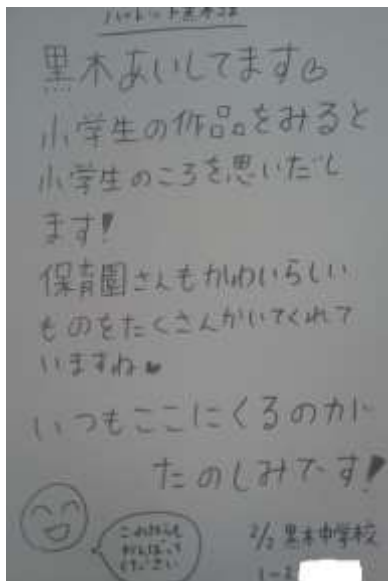 黒木あいしてます♡
小学生の作品をみると
小学生のころを思いだし
ます!
保育園さんもかわいらしい
ものをたくさんかいてくれて
いますね♥
いつもここにくるのが
たのしみです!
このあとも
がんばって
ください
2/2 黒木中学校